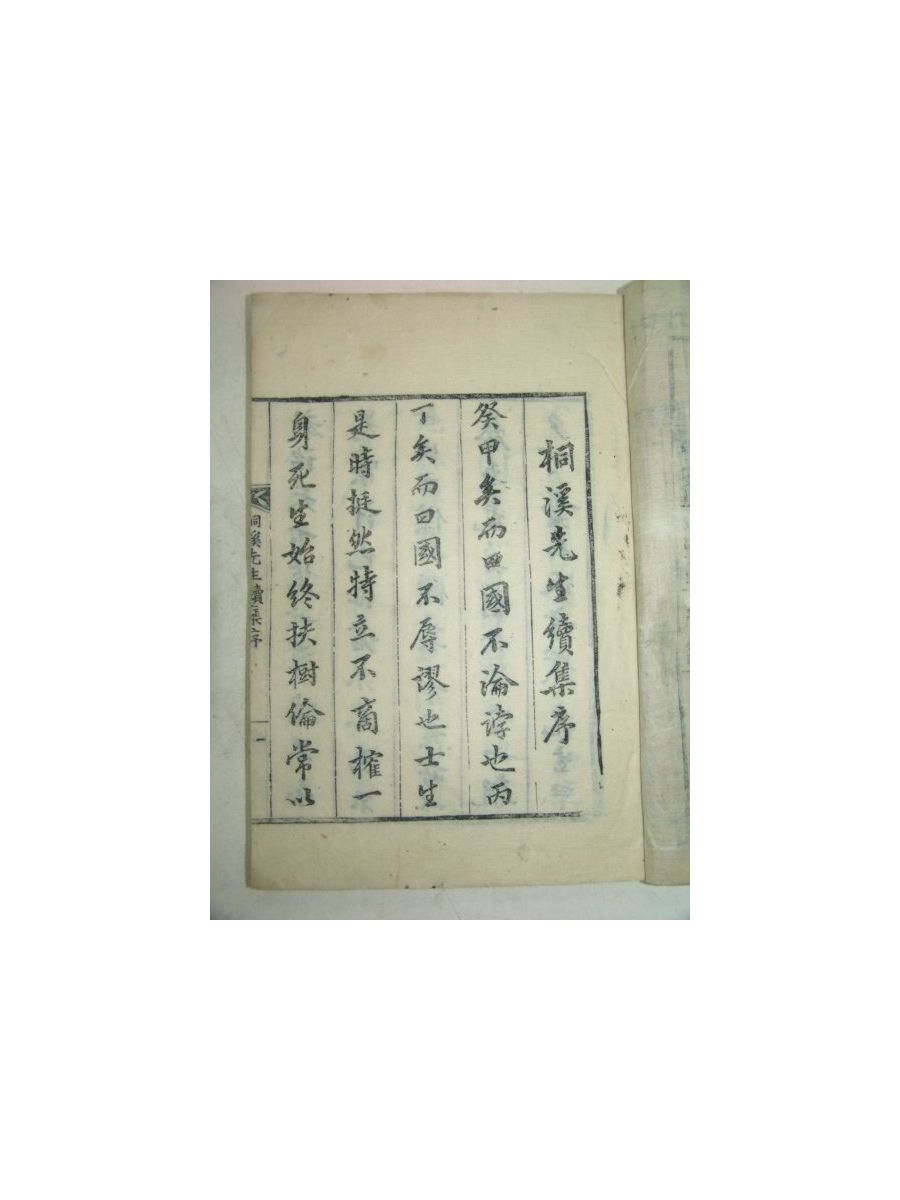 桐溪先生續集序
癸甲矣而曰國不淪誖也丙
丁矣而曰國不辱謬也士生
是時挺然特立不啇榷一
身死生始終扶樹倫常以
桐溪先生續集序
一